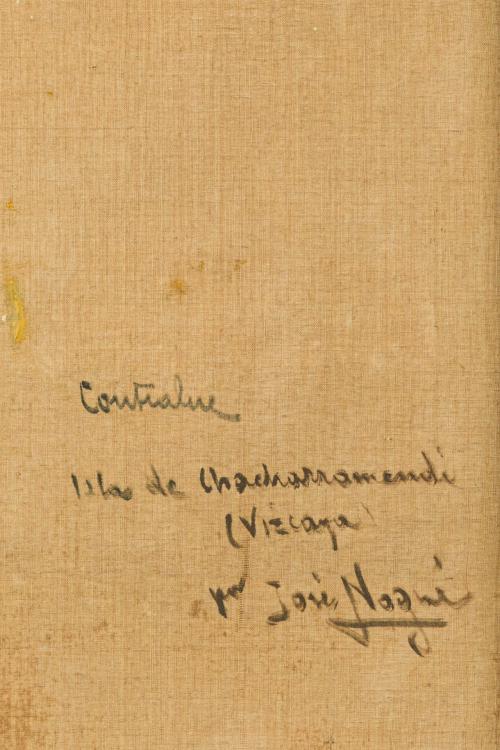 Contraluz
Isla de Chacharramendi
(Vizcaya)
por José Nogué